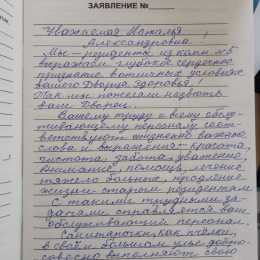 ЗАЯВЛЕНИЕ №
Уважаемая Наталья
Александровна!
Мы – резиденты из комн. №5
выражаем глубокое сердечно
признание в отличных условиях
вашего Дворца Здоровья!
Так мы пожелали назвать
Ваш Дворец.
Вашему труду и всему обслу-
живающему персоналу соот-
ветствуют жизненно важные
слова и выражения – красота,
чистота, забота, уважение,
внимание, помощь, лечение
тяжело больных, продление
жизни старым резидентам
С такими трудными за-
дачами справляется ваш
обслуживающий персонал.
Санитарочки, как пчёлки,
в своём большом улье добро-
совестно выполняют свою